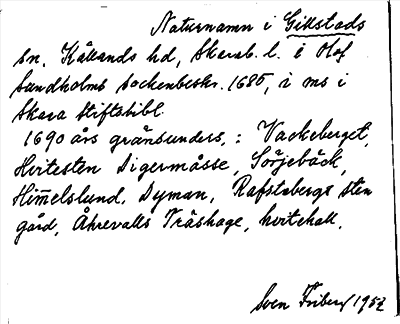 Naturnamn i Gillstads
sn. Kållands hd, Skarab. l. i Olof
Sundholms sockenbeskr. 1685, i ms i
Skara Stiftsbibl.
1690 års gränsunders. : Vackeberget,
Hvitesten Digermåsse, Sörjebäck,
Him̅elslund. Dyman, Rafstabergs sten
gård, Åhrevalls Träshage, hvitehall.
Sven Friberg 1952